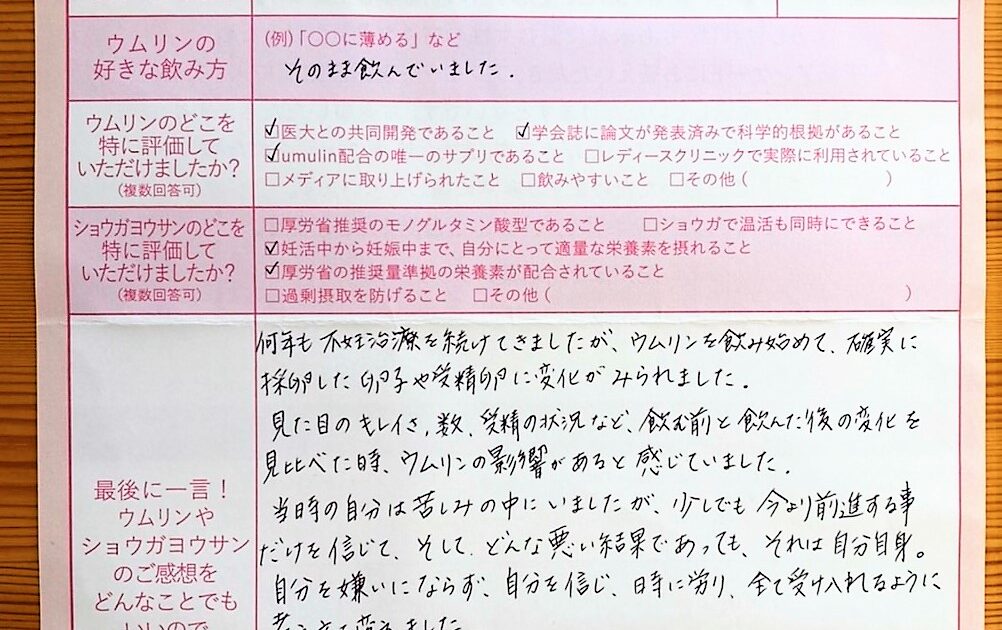 ウムリンの
好きな飲み方
(例)「〇〇に薄める」など
そのまま飲んでいました.
ウムリンのどこを
特に評価して
いただけましたか?
(複数回答可)
☑医大との共同開発であること ☑学会誌に論文が発表済みで科学的根拠があること
☑umulin配合の唯一のサプリであること □レディースクリニックで実際に利用されていること
□メディアに取り上げられたこと □飲みやすいこと □その他( )
ショウガヨウサンのどこを
特に評価して
いただけましたか?
(複数回答可)
□厚労省推奨のモノグルタミン酸型であること □ショウガで温活も同時にできること
☑妊活中から妊娠中まで、自分にとって適量な栄養素を摂れること
☑厚労省の推奨量準拠の栄養素が配合されていること
□過剰摂取を防げること □その他( )
最後に一言!
ウムリンや
ショウガヨウサン
のご感想を
どんなことでも
いいので
何年も不妊治療を続けてきましたが、ウムリンを飲み始めて、確実に
採卵した卵子や受精卵に変化がみられました.
見た目のキレイさ,数、受精の状況など、飲む前と飲んだ後の変化を
見比べた時、ウムリンの影響があると感じていました.
当時の自分は苦しみの中にいましたが、少しでも今より前進する事
だけを信じて、そして、どんな悪い結果であっても、それは自分自身。
自分を嫌いにならず、自分を信じ、時に労り、全て受け入れるように
考え方を変えました